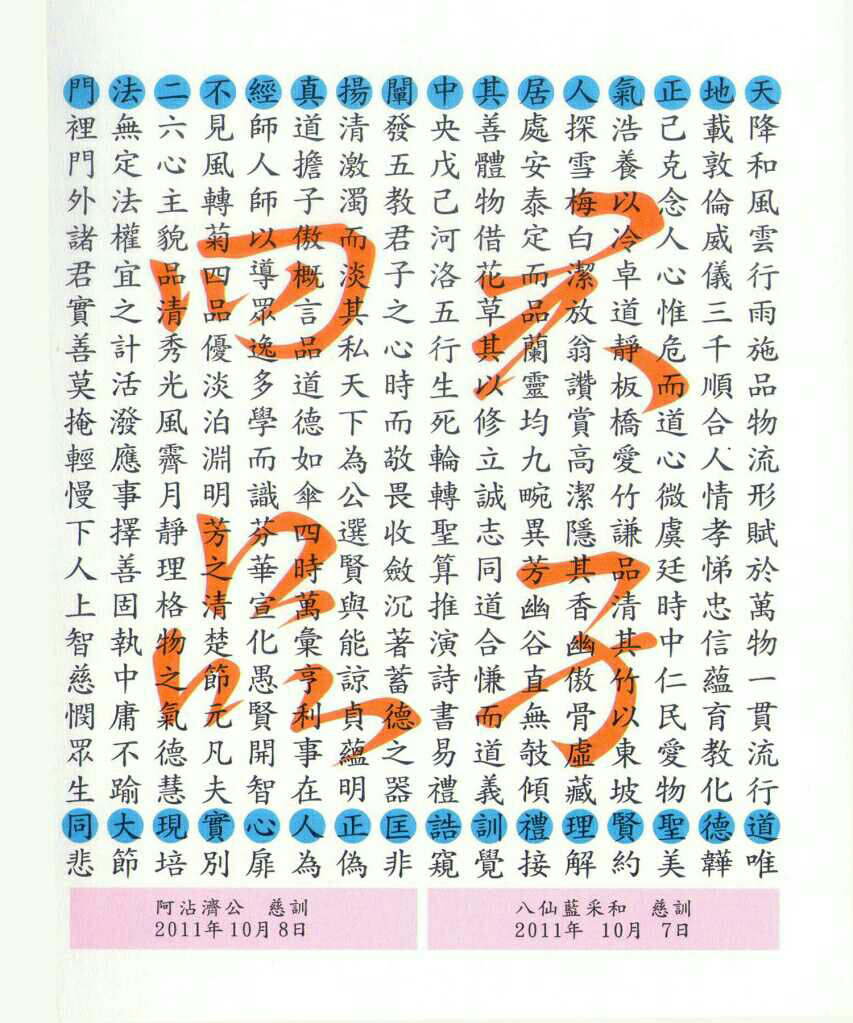 天降和風雲行雨施品物流形賦於萬物一貫流行道唯
地載敦倫威儀三千順合人情孝悌忠信蘊育教化德韡
正己克念人心惟危而道心微虞廷時中仁民愛物聖美
氣浩養以冷卓道靜板橋愛竹謙品清其竹以東坡賢約
人探雪梅白潔放翁讚賞高潔隱其香幽傲骨虛藏理解
居處安泰定而品蘭靈均九畹異芳幽谷直無攲傾禮接
其善體物借花草其以修立誠志同道合慊而道義訓覺
中央戊己河洛五行生死輪轉聖算推演詩書易禮誥窺
闡發五教君子之心時而敬畏收斂沉著蓄德之器匡非
揚清激濁而淡其私天下為公選賢與能諒貞蘊明正偽
真道擔子傲概言品道德如傘四時萬彙亨利事在人為
經師人師以導眾逸多學而識芬華宣化愚賢開智心扉
不見風轉菊四品優淡泊淵明芳之清楚節元凡夫實別
二六心主貌品清秀光風霽月靜理格物之氣德慧現培
法無定法權宜之計活潑應事擇善固執中庸不踰大節
門裡門外諸君實善莫掩輕慢下人上智慈憫眾生同悲
君子
四品
八仙藍采和 慈訓
2011年 10月 7日
阿沾濟公 慈訓
2011年10月8日